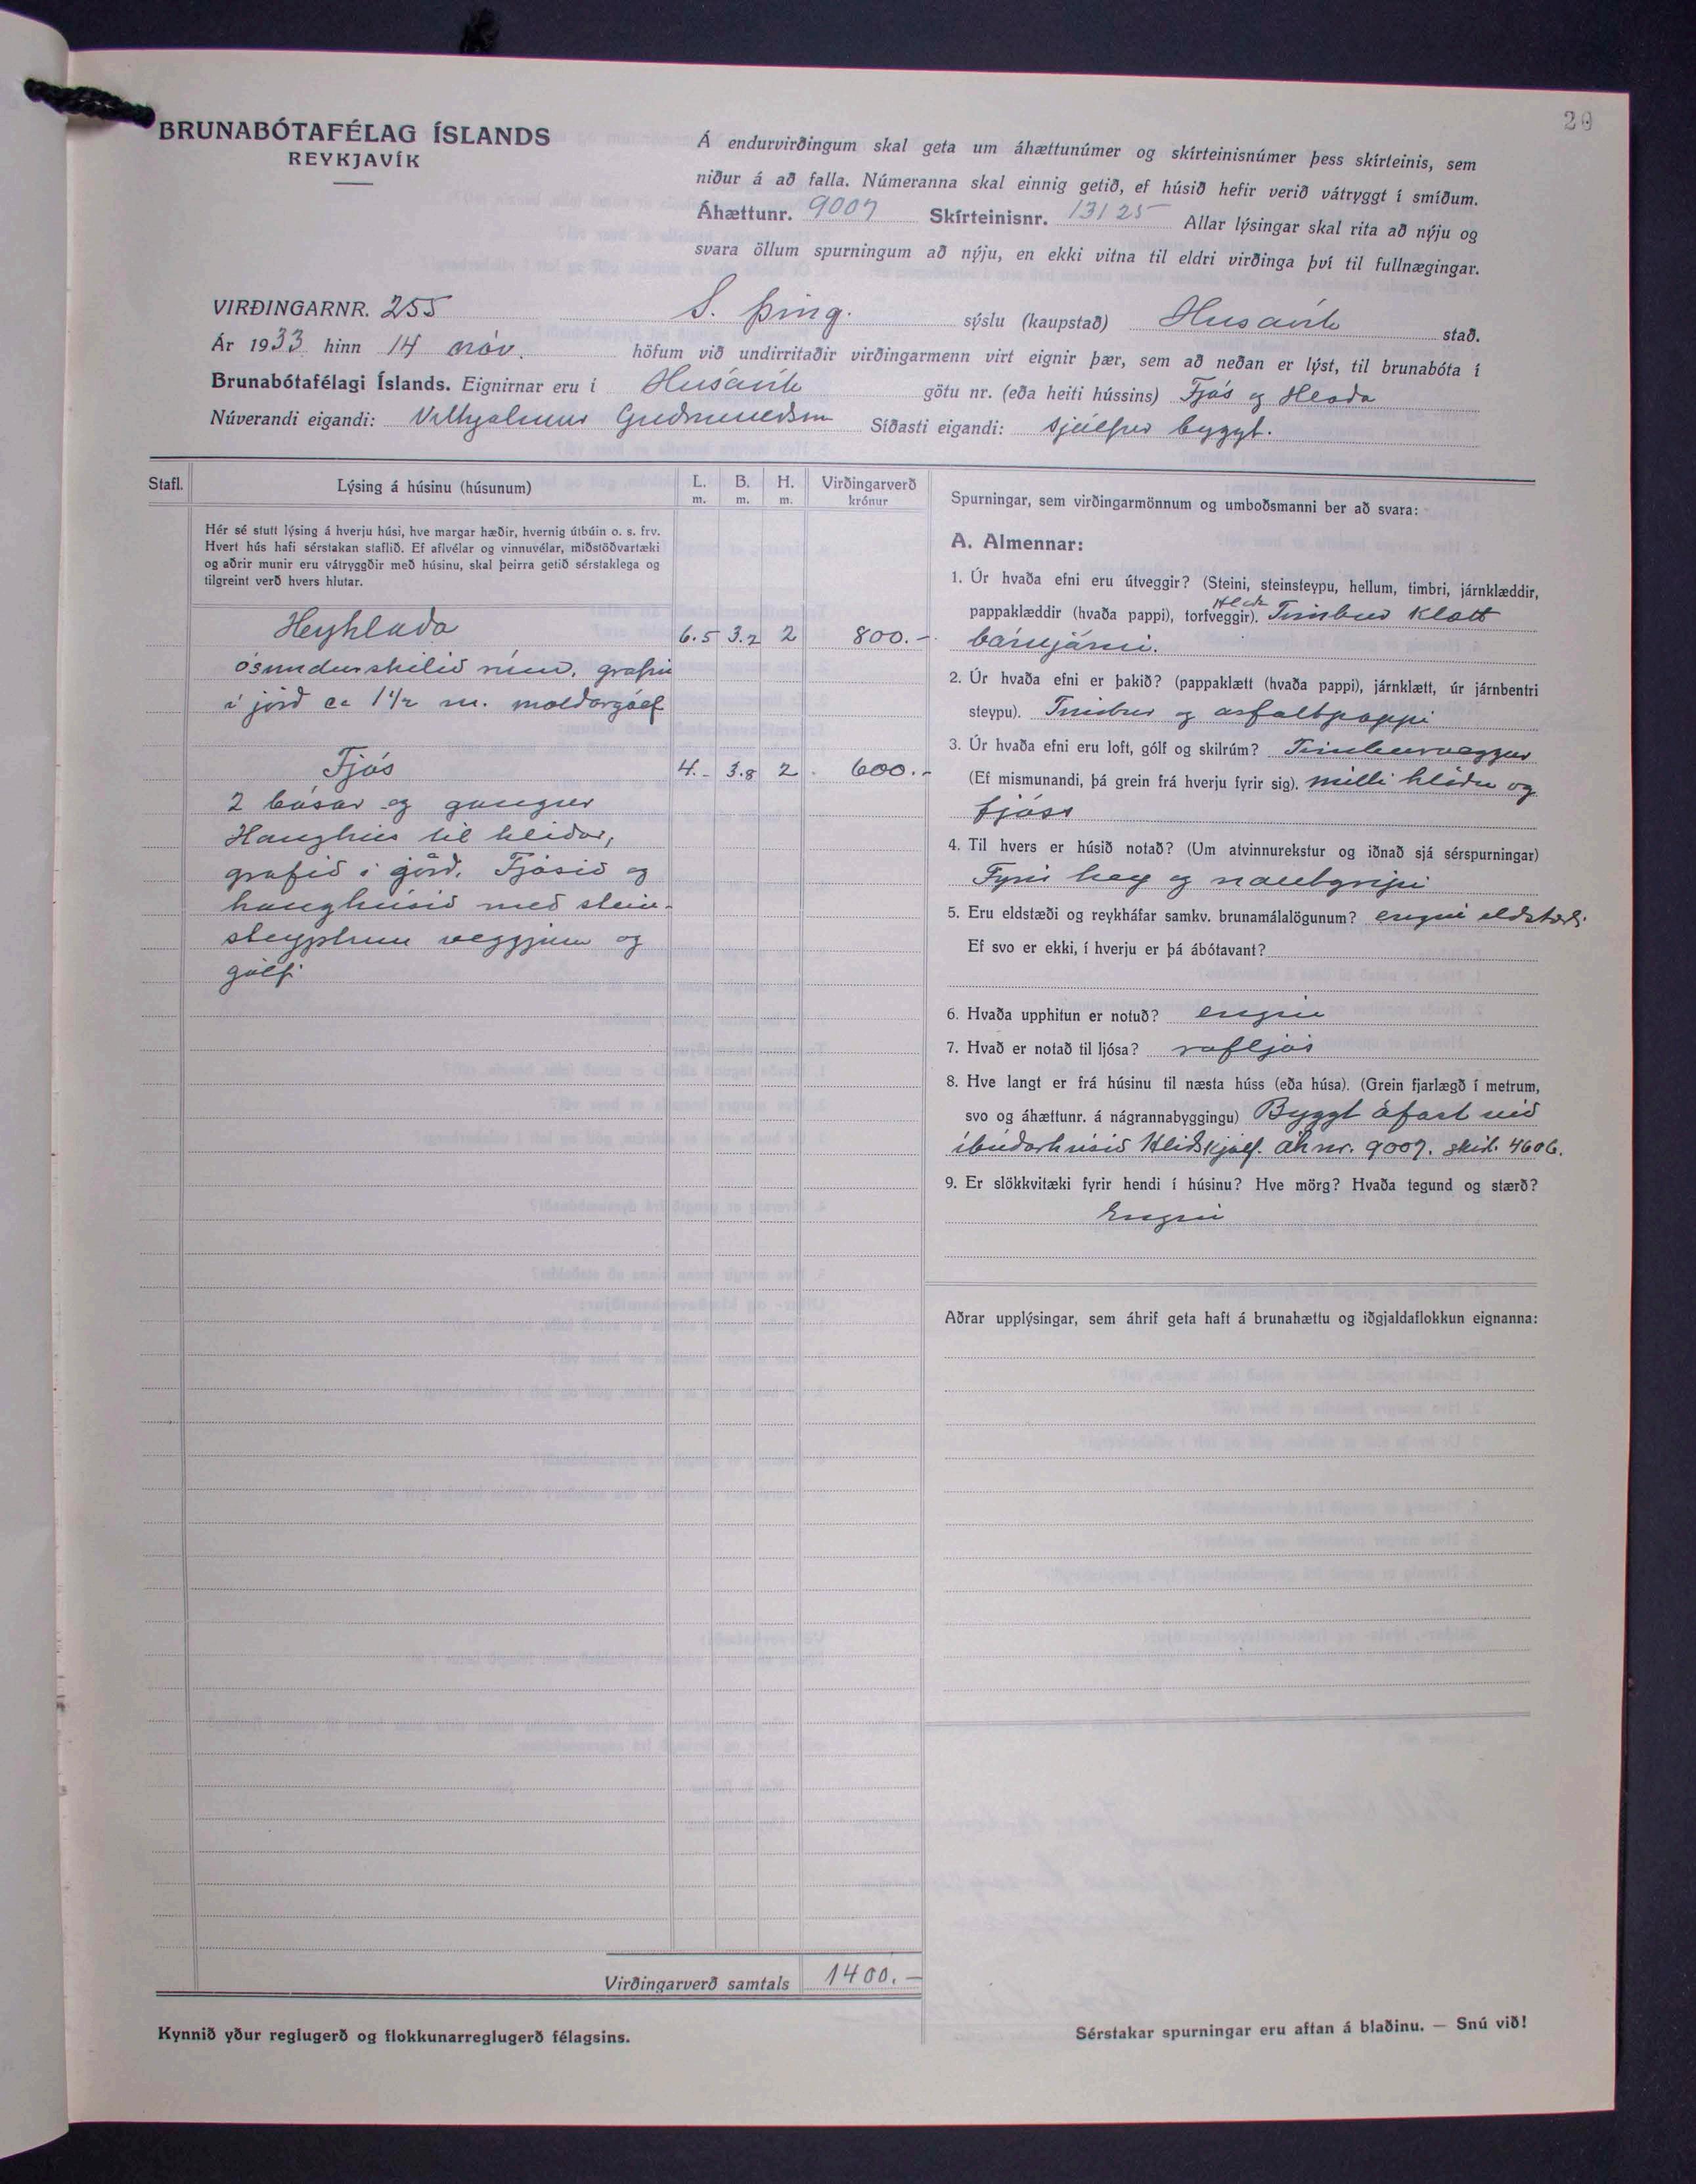 20
BRUNABÓTAFÉLAG ÍSLANDS
REYKJAVÍK
Á endurvirðingum skal geta um áhættunúmer og skírteinisnúmer þess skírteinis, sem
niður á að falla. Númeranna skal einnig getið, ef húsið hefir verið vátryggt í smíðum.
Áhættunr. 9007 Skírteinisnr. 13125 Allar lýsingar skal rita að nýju og
svara öllum spurningum að nýju, en ekki vitna til eldri virðinga því til fullnægingar.
VIRÐINGARNR. 255 S. Þing. sýslu (kaupstað) Húsavík stað.
Ár 1933 hinn 14 nóv. höfum við undirritaðir virðingarmenn virt eignir þær, sem að neðan er lýst, til brunabóta í
Brunabótafélagi Íslands. Eignirnar eru í Húsavík götu nr. (eða heiti hússins) Fjós og Hlaða
Núverandi eigandi: Vilhjalmur Guðmundsson Síðasti eigandi: sjálfur byggt.
Stafl. Lýsing á húsinu (húsunum) L. m. B. m. H. m. Virðingarverð krónur
Hér sé stutt lýsing á hverju húsi, hve margar hæðir, hvernig útbúin o. s. frv.
Hvert hús hafi sérstakan staflið. Ef aflvélar og vinnuvélar, miðstöðvartæki
og aðrir munir eru vátryggðir með húsinu, skal þeirra getið sérstaklega og
tilgreint verð hvers hlutar.
Heyhlaða 6.5 3.2 2 800.-
ósundurskilið rúm, grafin
í jörð ca 1 1/2 m. moldargólf
Fjós 4.- 3.8 2 600.-
2 básar og gangur
Haughús til hliðar,
grafið í jörð. Fjósið og
haughúsið með stein-
steyptum veggjum og
gólfi
Virðingarverð samtals 1400.-
Kynnið yður reglugerð og flokkunarreglugerð félagsins.
Spurningar, sem virðingarmönnum og umboðsmanni ber að svara:
A. Almennar:
1. Úr hvaða efni eru útveggir? (Steini, steinsteypu, hellum, timbri, járnklæddir,
pappaklæddir (hvaða pappi), torfveggir). Timbur klætt
bárujárni.
2. Úr hvaða efni er þakið? (pappaklætt (hvaða pappi), járnklætt, úr járnbentri
steypu). Timbur og asfaltpappi
3. Úr hvaða efni eru loft, gólf og skilrúm? Timburveggur
(Ef mismunandi, þá grein frá hverju fyrir sig). milli hlöðu og
fjóss
4. Til hvers er húsið notað? (Um atvinnurekstur og iðnað sjá sérspurningar)
Fyrir hey og nautgripi
5. Eru eldstæði og reykháfar samkv. brunamálalögunum? engin eldstæði
Ef svo er ekki, í hverju er þá ábótavant?
6. Hvaða upphitun er notuð? engin
7. Hvað er notað til ljósa? rafljós
8. Hve langt er frá húsinu til næsta húss (eða húsa). (Grein fjarlægð í metrum,
svo og áhættunr. á nágrannabyggingu) Byggt áfast við
íbúðarhúsið Hliðskjálf. áh nr. 9007. skírt. 4606.
9. Er slökkvitæki fyrir hendi í húsinu? Hve mörg? Hvaða tegund og stærð?
Engin
Aðrar upplýsingar, sem áhrif geta haft á brunahættu og iðgjaldaflokkun eignanna:
Sérstakar spurningar eru aftan á blaðinu. — Snú við!